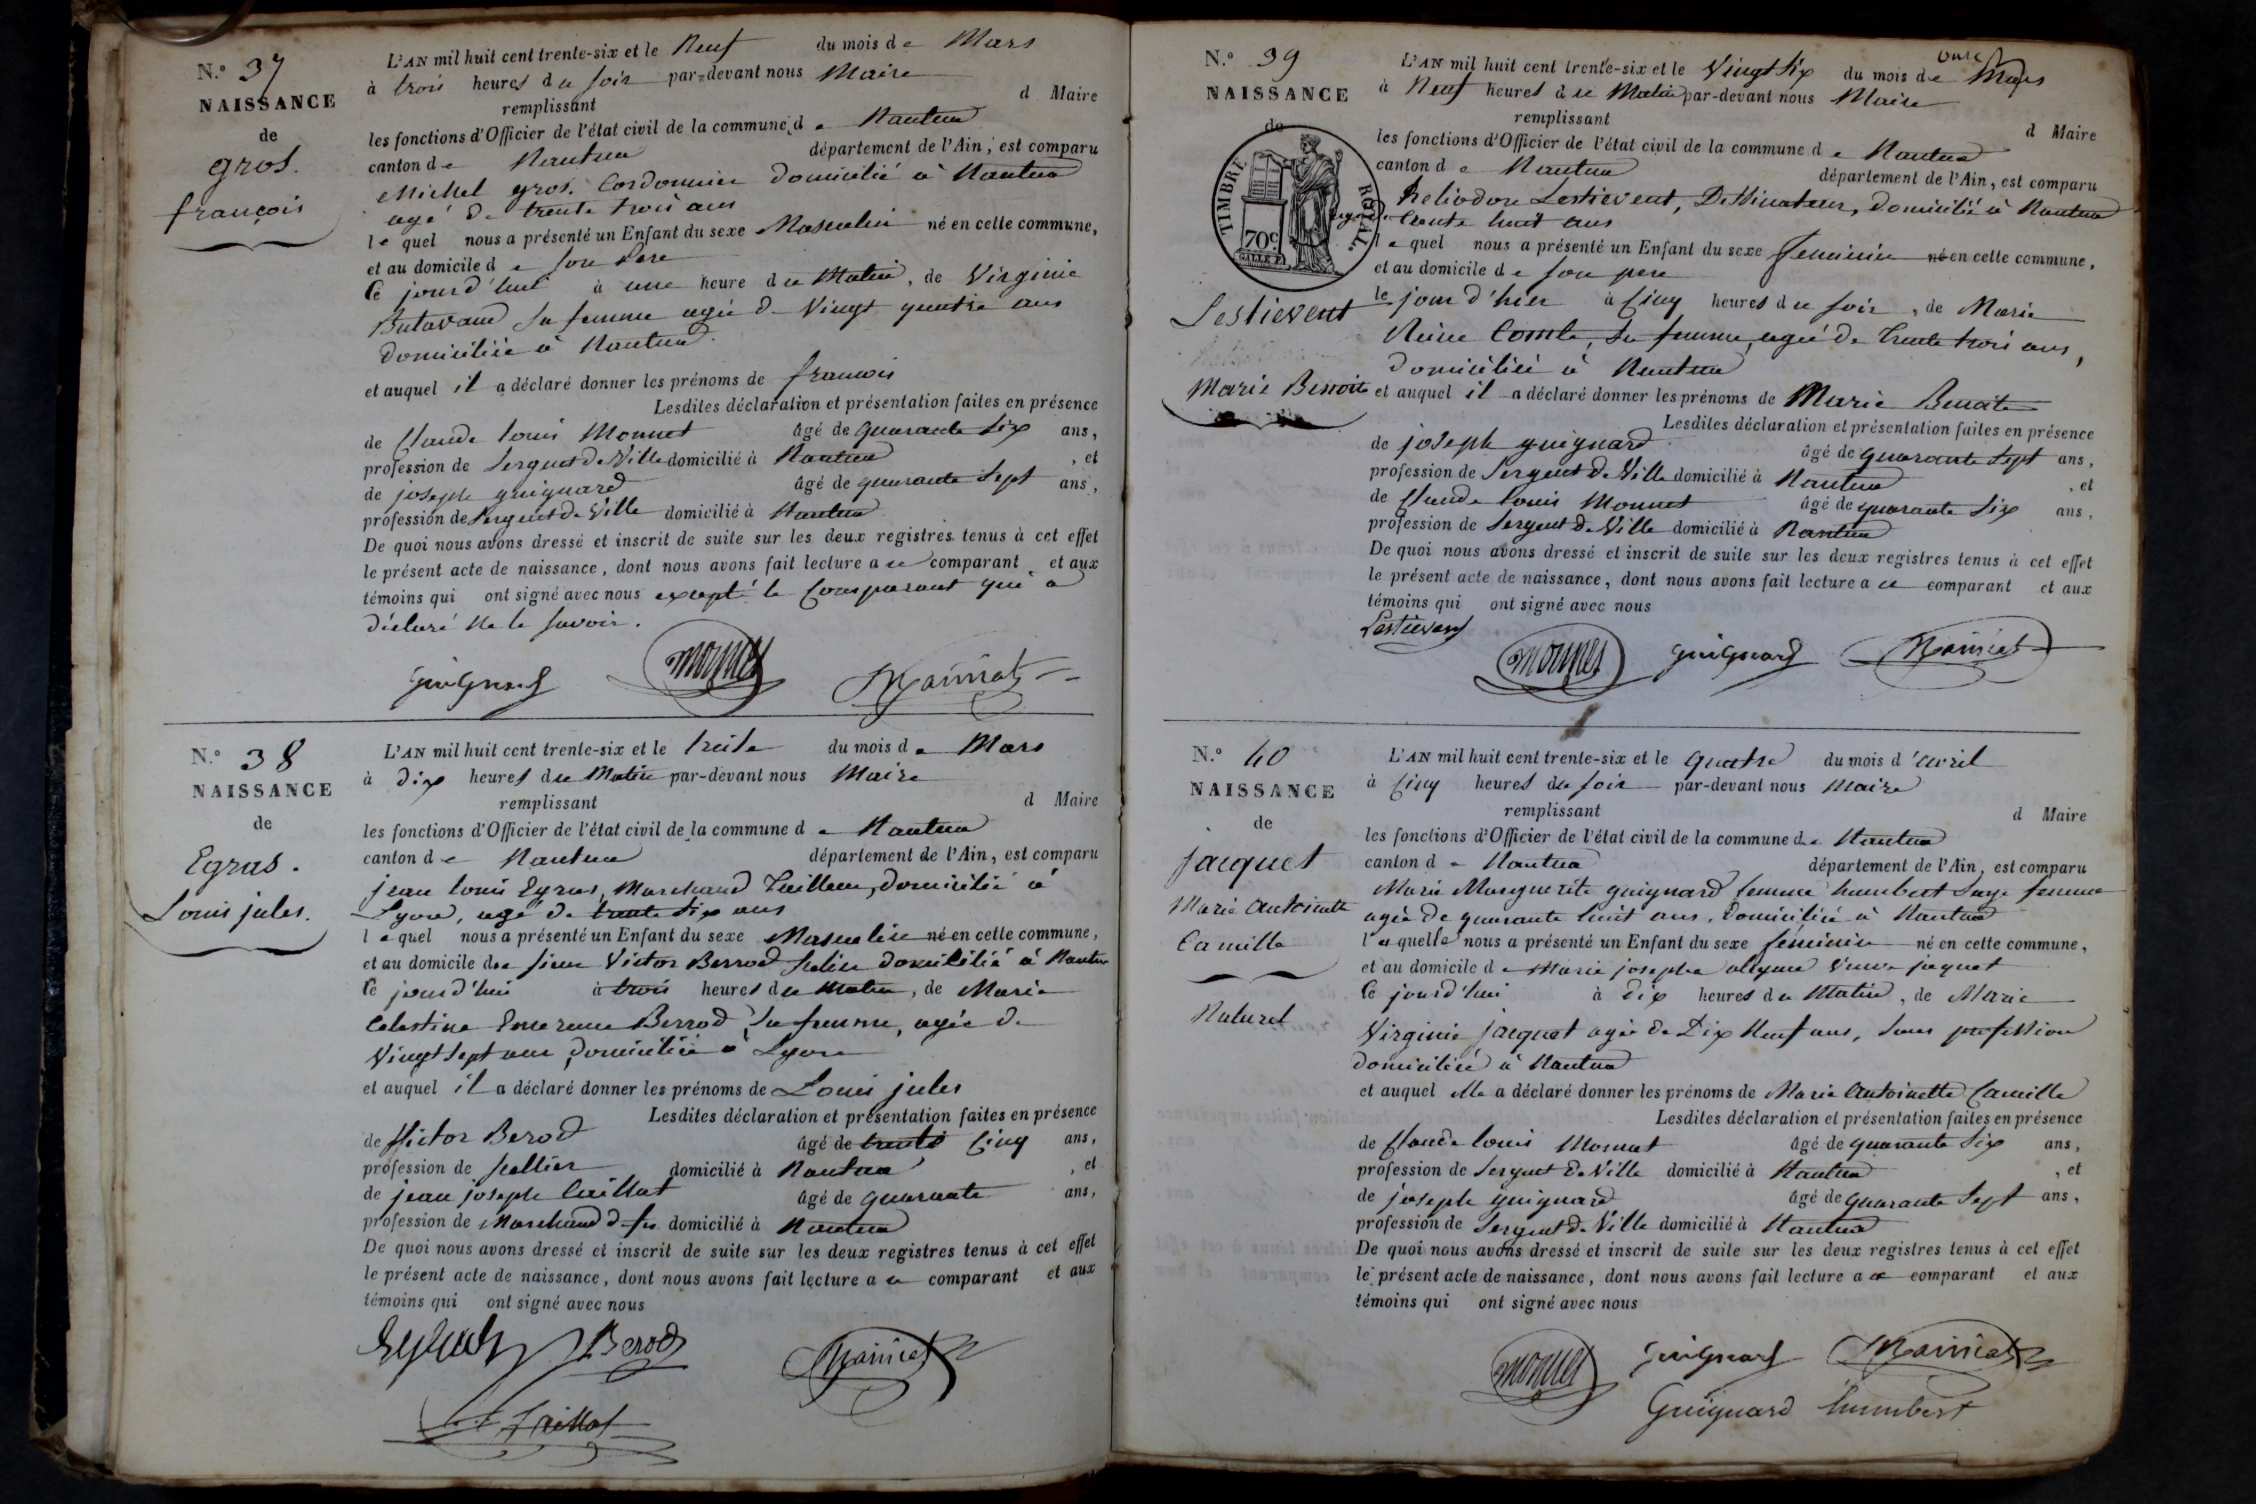 N.o 37
NAISSANCE
de
gros.
françois
L'AN mil huit cent trente-six et le Neuf du mois de Mars
à trois heures du soir par-devant nous Maire
remplissant d Maire
les fonctions d'Officier de l'état civil de la commune de Nantua
canton de Nantua département de l'Ain, est comparu
Michel gros, Cordonnier domicilié à Nantua
agé de trente trois ans
lequel nous a présenté un Enfant du sexe Masculin né en cette commune,
et au domicile de son Pere
ce jourd'hui à une heure du Matin, de Virginie
Butavand sa femme agée de Vingt quatre ans
domiciliée à Nantua
et auquel il a déclaré donner les prénoms de francois
Lesdites déclaration et présentation faites en présence
de Claude louis Monnet âgé de quarante six ans,
profession de Sergent de Ville domicilié à Nantua, et
de joseph guignard âgé de quarante Sept ans,
profession de Sergent de Ville domicilié à Nantua
De quoi nous avons dressé et inscrit de suite sur les deux registres tenus à cet effet
le présent acte de naissance, dont nous avons fait lecture au comparant et aux
témoins qui ont signé avec nous excepté le Comparant qui a
déclaré Ne le savoir.
Guignard monnet
N.o 38
NAISSANCE
de
Egras.
Louis jules.
L'AN mil huit cent trente-six et le treize du mois de Mars
à dix heures du Matin par-devant nous Maire
remplissant d Maire
les fonctions d'Officier de l'état civil de la commune de Nantua
canton de Nantua département de l'Ain, est comparu
jean louis Egras, Marchand Tailleur, domicilié à
Lyon, agé de trente six ans
lequel nous a présenté un Enfant du sexe Masculin né en cette commune,
et au domicile du sieur Victor Berrod Sellier domicilié à Nantua
ce jourd'hui à trois heures du Matin, de Marie
Celestine Emerance Berrod, sa femme, agée de
Vingt sept ans, domiciliée à Lyon
et auquel il a déclaré donner les prénoms de Louis jules
Lesdites déclaration et présentation faites en présence
de Victor Berod âgé de trente Cinq ans,
profession de sellier domicilié à Nantua, et
de jean joseph Caillat âgé de quarante ans,
profession de Marchand domicilié à Nantua
De quoi nous avons dressé et inscrit de suite sur les deux registres tenus à cet effet
le présent acte de naissance, dont nous avons fait lecture au comparant et aux
témoins qui ont signé avec nous
Berod
N.o 39
NAISSANCE
de
TIMBRE ROYAL.
70c
Lestievent
Marie Benoite
onze
L'AN mil huit cent trente-six et le Vingt six du mois de Mars
à Neuf heures du Matin par-devant nous Maire
remplissant d Maire
les fonctions d'Officier de l'état civil de la commune de Nantua
canton de Nantua département de l'Ain, est comparu
heliodore Lestievent, Dessinateur, domicilié à Nantua
agé de trente huit ans
lequel nous a présenté un Enfant du sexe feminin né en cette commune,
et au domicile de son pere
le jour d'hier à Cinq heures du soir, de Marie
Reine Comte, sa femme, agée de trente trois ans,
domiciliée à Nantua
et auquel il a déclaré donner les prénoms de Marie Benoite
Lesdites déclaration et présentation faites en présence
de joseph guignard âgé de quarante Sept ans,
profession de Sergent de Ville domicilié à Nantua, et
de Claude louis Monnet âgé de quarante Six ans,
profession de Sergent de Ville domicilié à Nantua
De quoi nous avons dressé et inscrit de suite sur les deux registres tenus à cet effet
le présent acte de naissance, dont nous avons fait lecture au comparant et aux
témoins qui ont signé avec nous
Lestievent
monnet Guignard
N.o 40
NAISSANCE
de
jacquet
Marie Antoinette
Camille
Naturel
L'AN mil huit cent trente-six et le quatre du mois d'avril
à Cinq heures du soir par-devant nous Maire
remplissant d Maire
les fonctions d'Officier de l'état civil de la commune de Nantua
canton de Nantua département de l'Ain, est comparu
Marie Marguerite guignard femme humbert Sage femme
agée de quarante huit ans, domiciliée à Nantua
laquelle nous a présenté un Enfant du sexe féminin né en cette commune,
et au domicile de Marie josephe Veuve jaquet
ce jourd'hui à dix heures du Matin, de Marie
Virginie jacquet agée de Dix Neuf ans, sans profession
domiciliée à Nantua
et auquel elle a déclaré donner les prénoms de Marie Antoinette Camille
Lesdites déclaration et présentation faites en présence
de Claude louis Monnet âgé de quarante Six ans,
profession de Sergent de Ville domicilié à Nantua, et
de joseph guignard âgé de quarante Sept ans,
profession de Sergent de Ville domicilié à Nantua
De quoi nous avons dressé et inscrit de suite sur les deux registres tenus à cet effet
le présent acte de naissance, dont nous avons fait lecture a comparant et aux
témoins qui ont signé avec nous
monnet Guignard
Guignard humbert